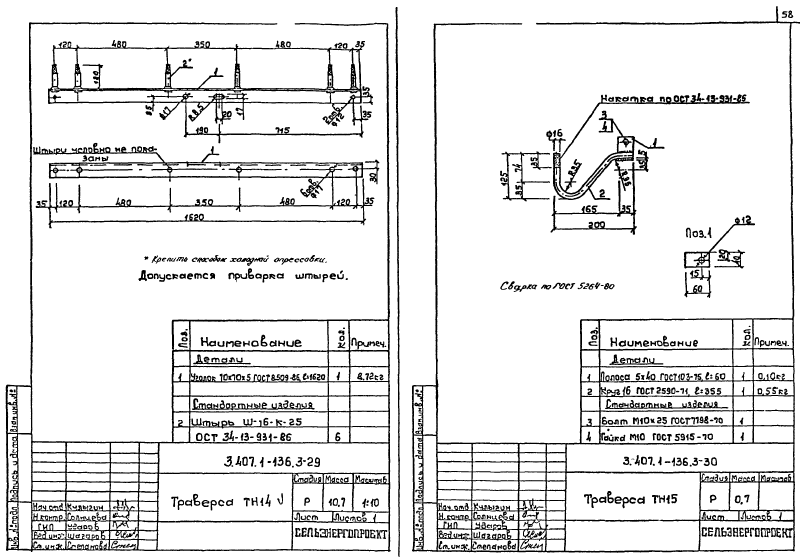 58
120 480 350 480 120 35
2*
1
180
35
35
R17
R8.5
20
17
6отв ф12
35
35
190 715
Штыри условно не пока-
заны
1
6отв
30
35 120 480 350 480 120 35
1620
* Крепить способом холодной опрессовки.
Допускается приварка штырей.
Поз. Наименование Кол. Примеч.
Детали
1 Уголок 70х70х5 ГОСТ 8509-86, ℓ=1620 1 8,72кг
Стандартные изделия
2 Штырь Ш-16-К-25
ОСТ 34-13-931-86 6
3.407.1-136.3-29
Траверса ТН14
Стадия Масса Масштаб
Р 10,7 1:10
Лист Листов 1
СЕЛЬЭНЕРГОПРОЕКТ
Нач.отд. Кулыгин
Н.контр. Солнцева
ГИП Ударов
Вед.инж. Шагаров
Ст.инж. Степанова
Инв.№подл. Подпись и дата Взам.инв.№
Накатка по ОСТ 34-13-931-86
ф16
3
4
1
125
74
35
35
R35
R36
2
165 35
200
Поз.1
ф12
20
40
15
60
Сварка по ГОСТ 5264-80
Поз. Наименование Кол. Примеч.
Детали
1 Полоса 5х40 ГОСТ 103-76, ℓ=60 1 0,10кг
2 Круг 16 ГОСТ 2590-71, ℓ=355 1 0,55кг
Стандартные изделия
3 Болт М10х25 ГОСТ 7798-70 1
4 Гайка М10 ГОСТ 5915-70 1
3.407.1-136.3-30
Траверса ТН15
Стадия Масса Масштаб
Р 0,7
Лист Листов 1
СЕЛЬЭНЕРГОПРОЕКТ
Нач.отд. Кулыгин
Н.контр. Солнцева
ГИП Ударов
Вед.инж. Шагаров
Ст.инж. Степанова
Инв.№подл. Подпись и дата Взам.инв.№